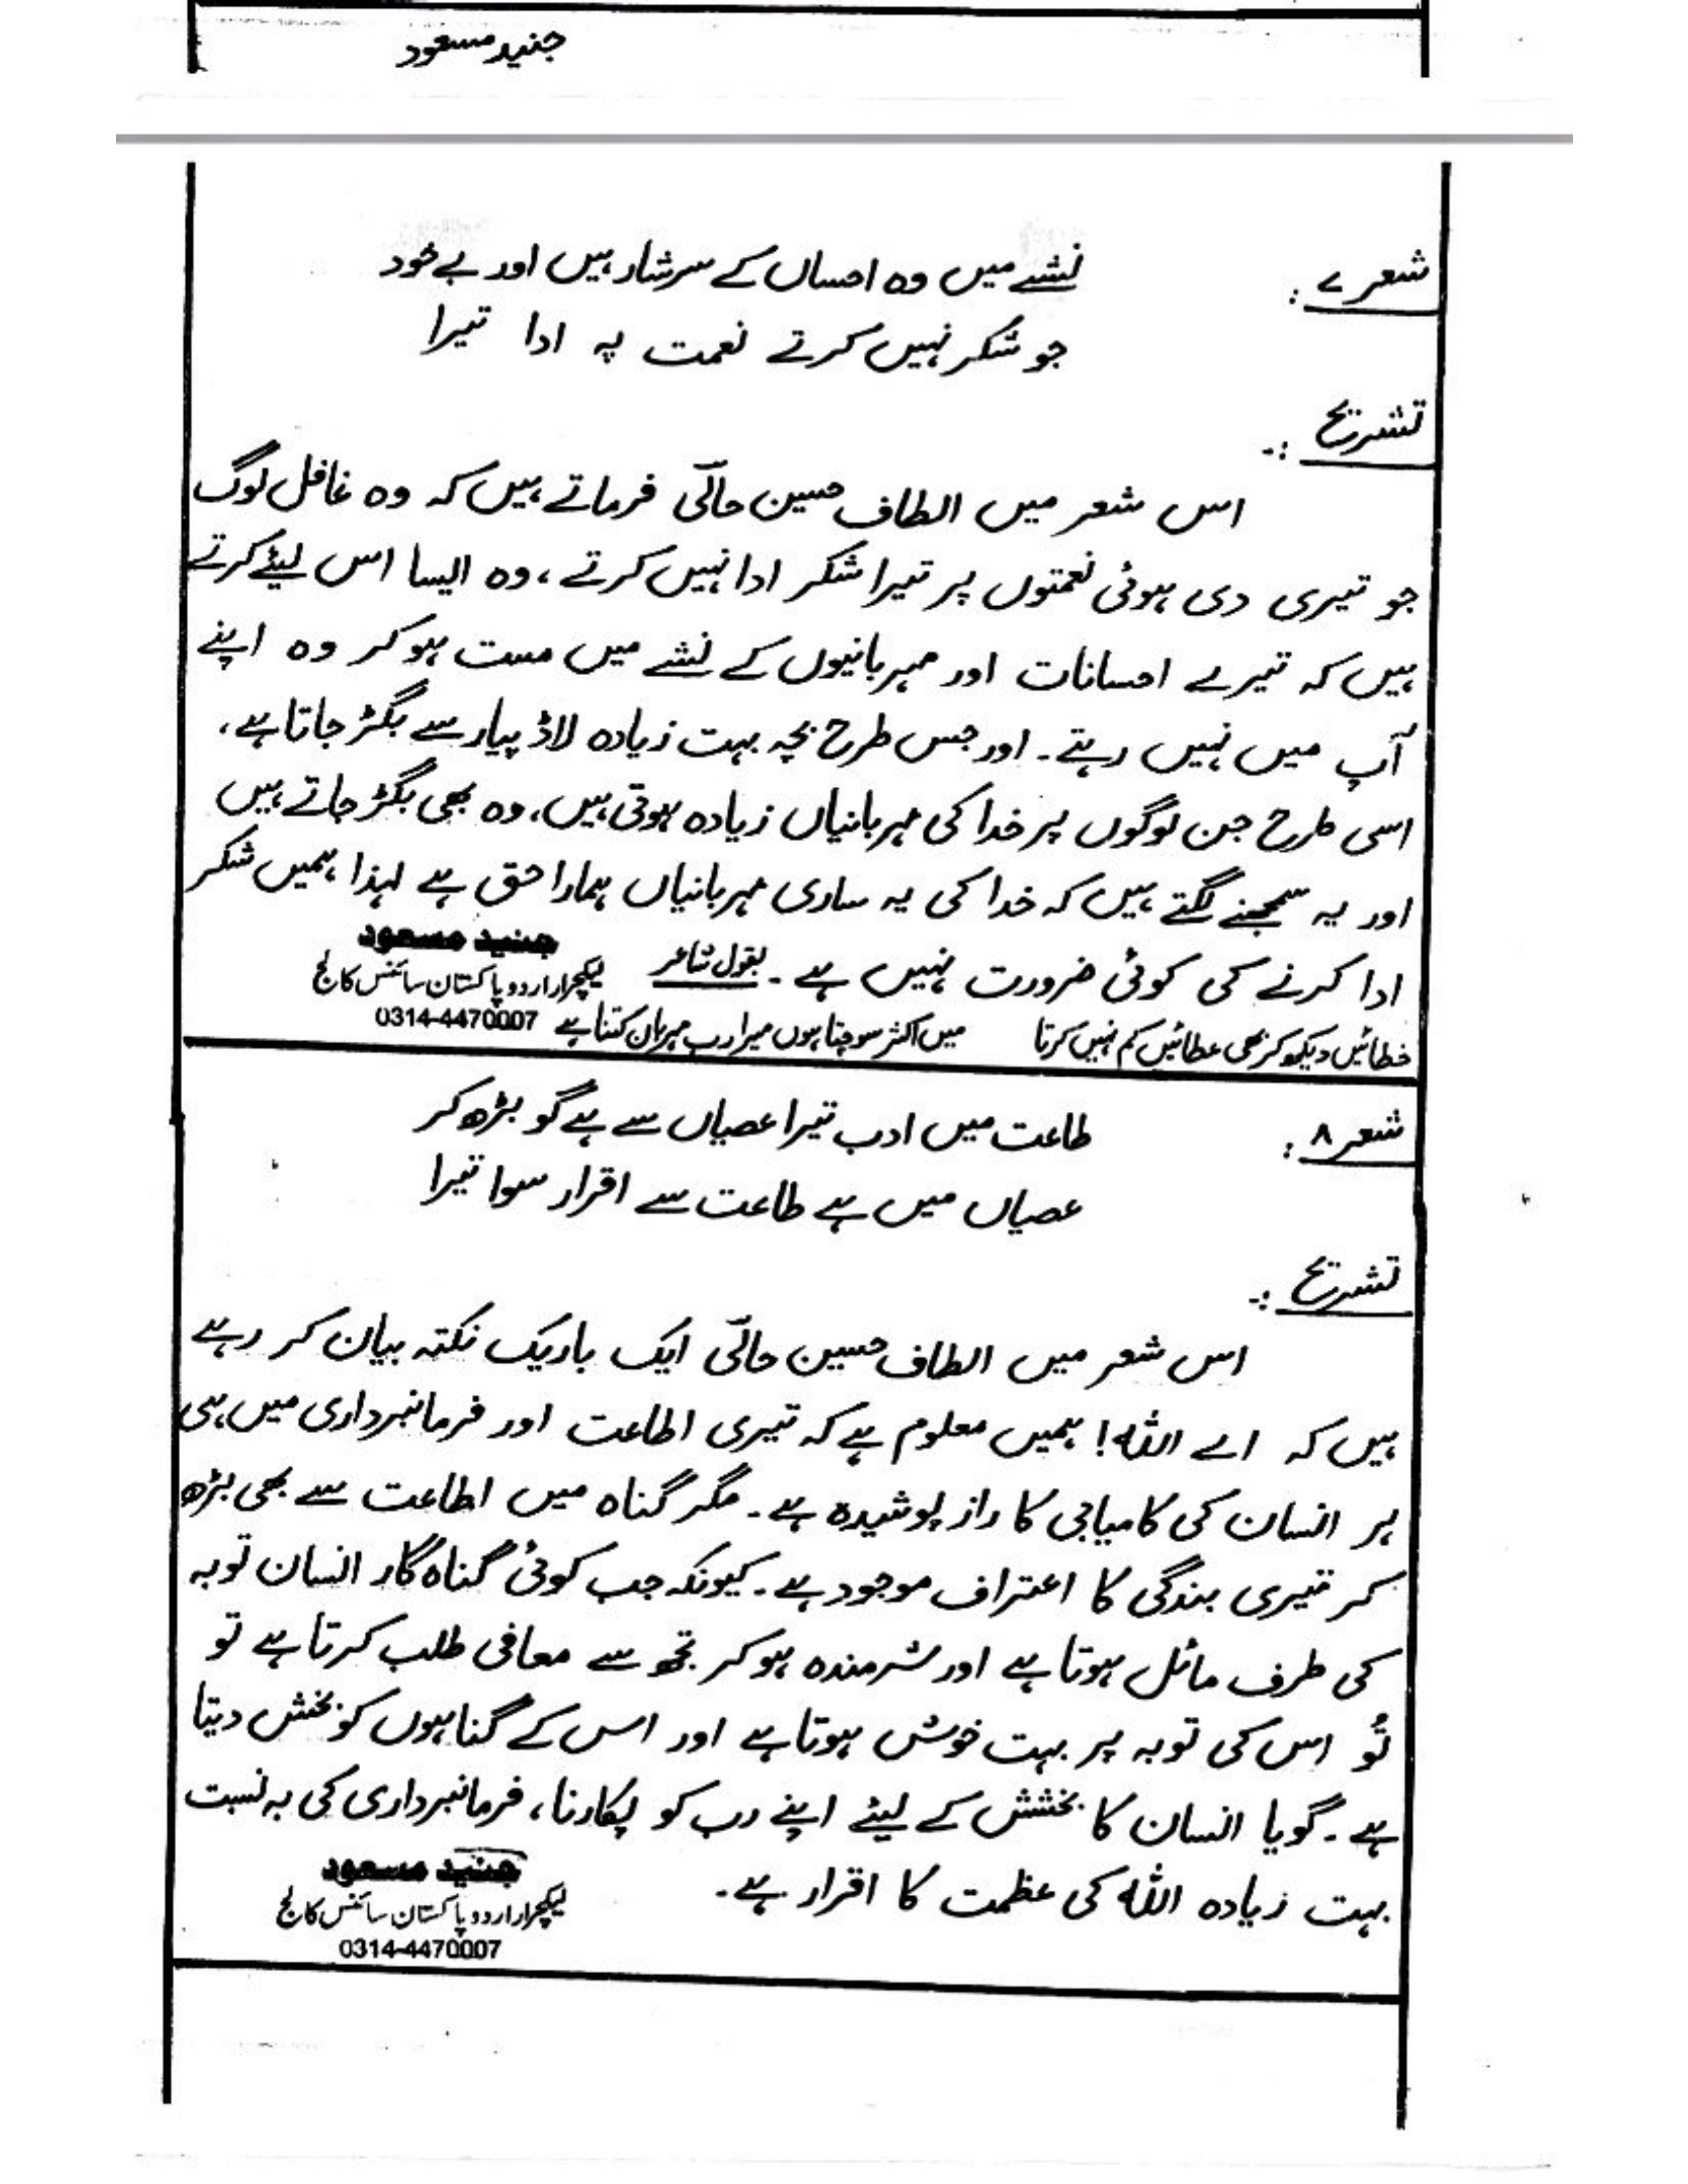 جنید مسعود
شعر ۷:
نشے میں وہ احساں کے سرشار ہیں اور بے خود
جو شکر نہیں کرتے نعمت پہ ادا تیرا
تشریح :-
اس شعر میں الطاف حسین حالیؔ فرماتے ہیں کہ وہ غافل لوگ
جو تیری دی ہوئی نعمتوں پر تیرا شکر ادا نہیں کرتے، وہ ایسا اس لیئے کرتے
ہیں کہ تیرے احسانات اور مہربانیوں کے نشے میں مست ہو کر وہ اپنے
آپ میں نہیں رہتے۔ اور جس طرح بچہ بہت زیادہ لاڈ پیار سے بگڑ جاتا ہے،
اسی طرح جن لوگوں پر خدا کی مہربانیاں زیادہ ہوتی ہیں، وہ بھی بگڑ جاتے ہیں
اور یہ سمجھنے لگتے ہیں کہ خدا کی یہ ساری مہربانیاں ہمارا حق ہے لہٰذا ہمیں شکر
ادا کرنے کی کوئی ضرورت نہیں ہے۔ بقول شاعر
خطائیں دیکھ کر بھی عطائیں کم نہیں کرتا میں اکثر سوچتا ہوں میرا رب مہربان کتنا ہے
جنید مسعود
لیکچرار اردو پاکستان سائنس کالج
0314-4470007
شعر ۸:
طاعت میں ادب تیرا عصیاں سے ہے گو بڑھ کر
عصیاں میں ہے طاعت سے اقرار سوا تیرا
تشریح :-
اس شعر میں الطاف حسین حالیؔ ایک باریک نکتہ بیان کر رہے
ہیں کہ اے اللہ! ہمیں معلوم ہے کہ تیری اطاعت اور فرمانبرداری میں ہی
ہر انسان کی کامیابی کا راز پوشیدہ ہے۔ مگر گناہ میں اطاعت سے بھی بڑھ
کر تیری بندگی کا اعتراف موجود ہے۔ کیونکہ جب کوئی گناہ گار انسان توبہ
کی طرف مائل ہوتا ہے اور شرمندہ ہو کر تجھ سے معافی طلب کرتا ہے تو
تُو اس کی توبہ پر بہت خوش ہوتا ہے اور اس کے گناہوں کو بخش دیتا
ہے۔ گویا انسان کا بخشش کے لیئے اپنے رب کو پکارنا، فرمانبرداری کی بہ نسبت
بہت زیادہ اللہ کی عظمت کا اقرار ہے۔
جنید مسعود
لیکچرار اردو پاکستان سائنس کالج
0314-4470007